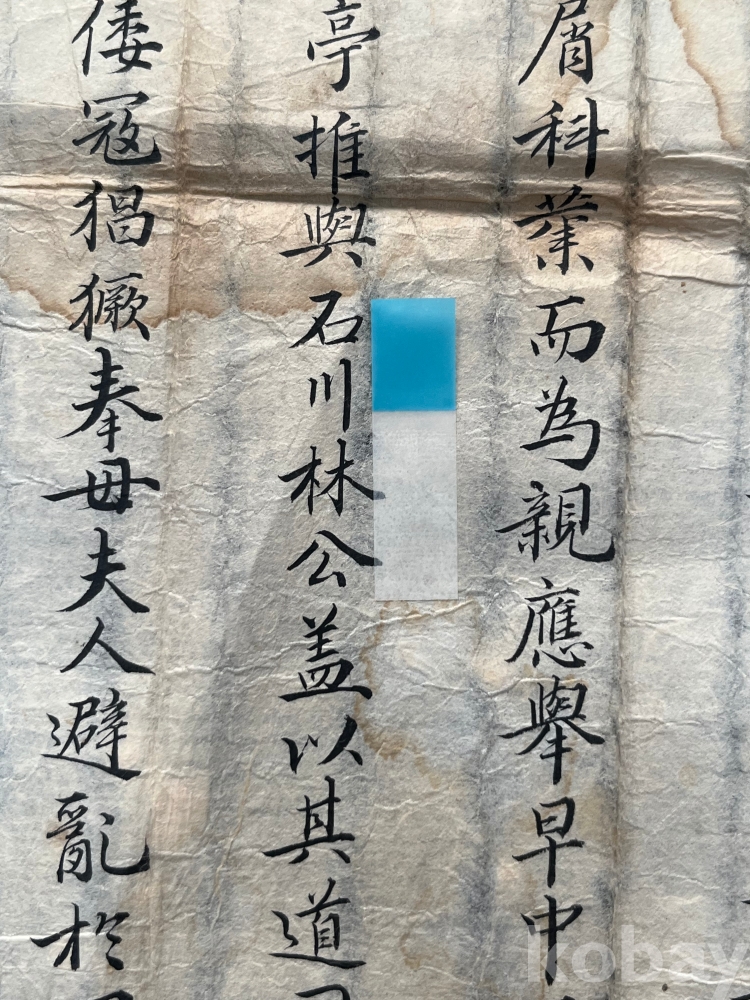 屑科業而為親應舉早中
亭推與石川林公盖以其道
倭冦猖獗奉母夫人避亂於
kobay